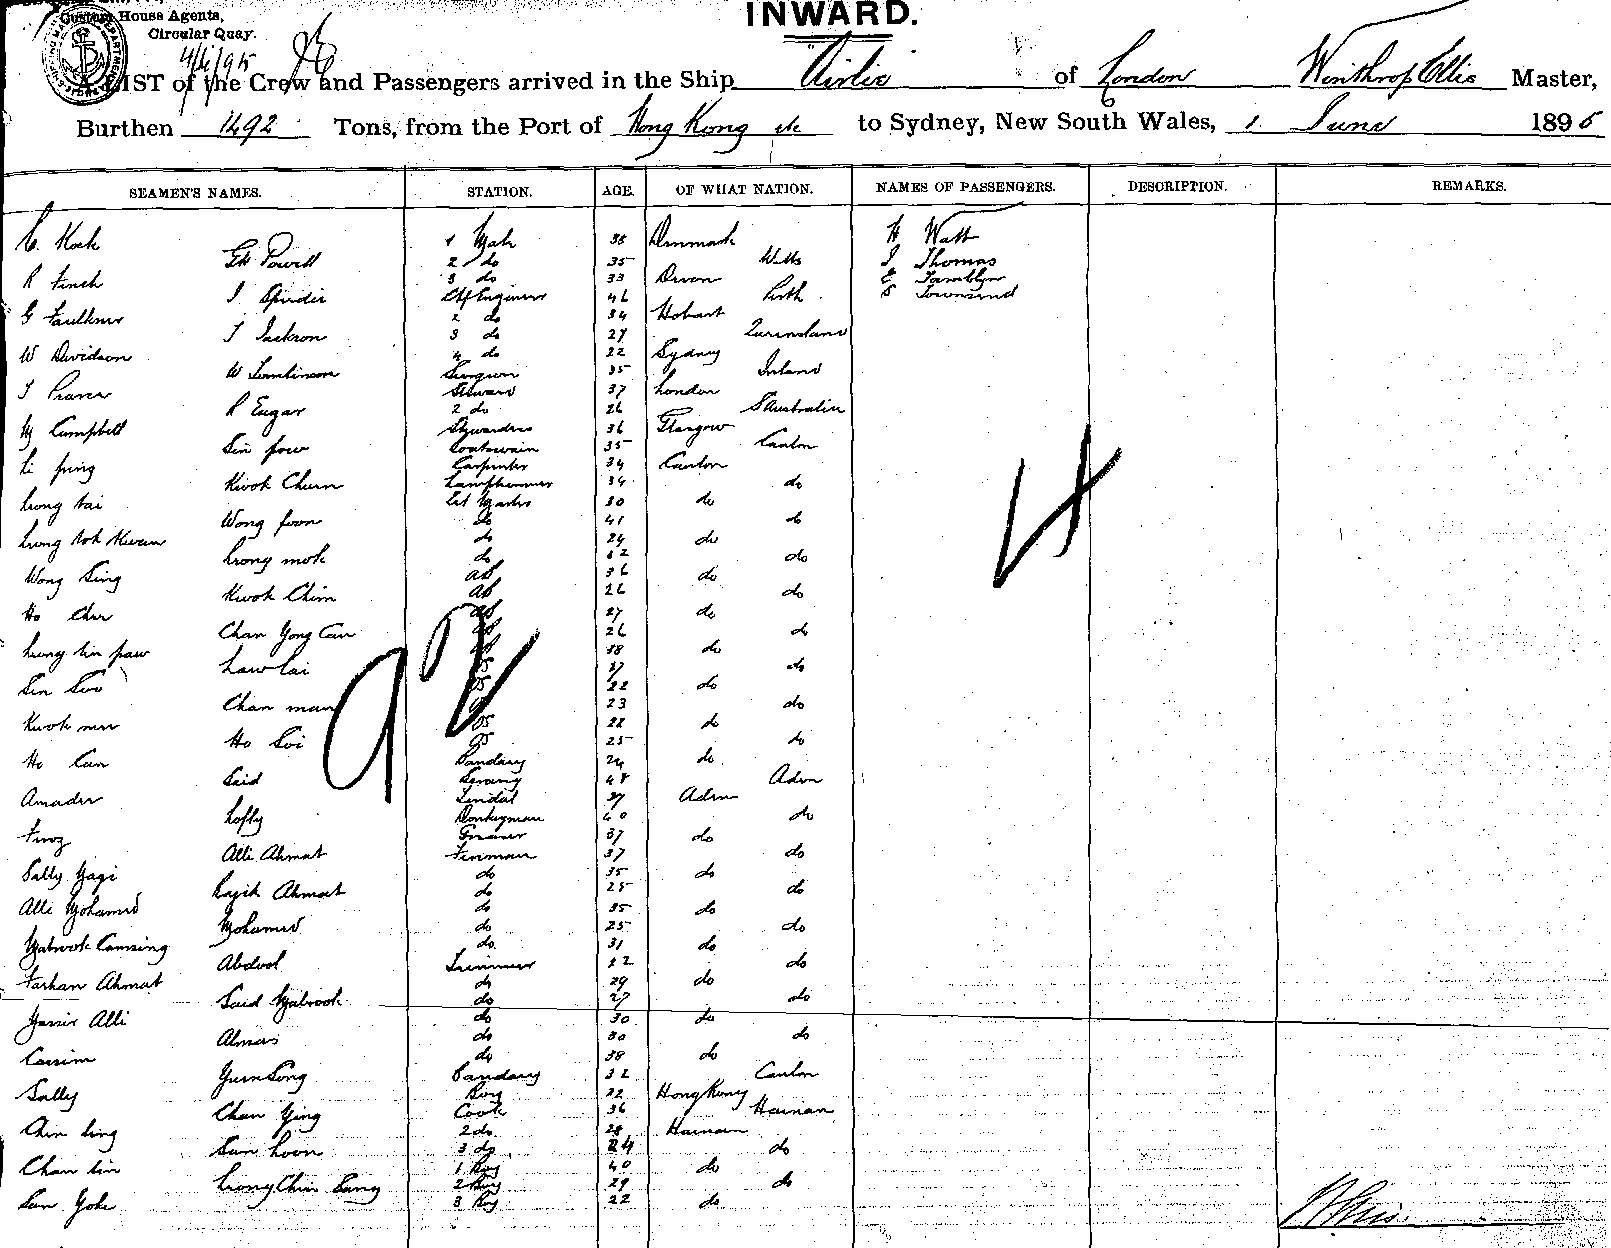 Custom House Agents,
Circular Quay.
INWARD.
LIST of the Crew and Passengers arrived in the Ship Airlie of London Winthrop Ellis Master,
Burthen 1492 Tons, from the Port of Hong Kong etc to Sydney, New South Wales, 1 June 1895
SEAMEN'S NAMES. STATION. AGE. OF WHAT NATION. NAMES OF PASSENGERS. DESCRIPTION. REMARKS.
C. Kock 1 Mate 38 Denmark H Watt
GH Powell 2 do 35 Wilts J Thomas
R Finch 3 do 33 Devon E Tamblyn
J. Spindie Chf Engineer 46 Perth S Townsend
G Faulkner 2 do 34 Hobart
T Jackson 3 do 27 Queensland
W Davidson 4 do 22 Sydney
W Tomlinson Surgeon 35 Ireland
J Pearce Steward 37 London
R Eugar 2 do 26 S Australia
M Campbell Stewardess 36 Glasgow
Sin fow Boatswain 35 Canton
Li fning Carpenter 34 Canton
Kwok Chun Lamptrimmer 34 do
Leong tai Qr Master 30 do
Wong foon do 41 do
Leong tok Kwan do 24 do
Leong mok do 32 do
Wong Sing AB 36 do
Kwok Chim AB 26 do
Ho Chee AB 27 do
Chan Yong Can 26 do
Leung tin paw 38 do
Law lai 37 do
Sin Soo 22 do
Chan man 23 do
Kwok mun 22 do
Ho Soi 25 do
Ho Can Bandary 24 do
Said Serang 48 Aden
Amader Tindal 37 Aden
Lofly Donkeyman 40 do
Firoz Greaser 37 do
Alli Ahmat Fireman 37 do
Sally Yagi do 35 do
Lagih Ahmat do 25 do
Alli Mohamed do 35 do
Mohamed do 25 do
Mabrook Camsing do 31 do
Abdool Trimmer 22 do
Farhan Ahmat do 29 do
Said Mabrook do 27 do
Yassir Alli do 30 do
Almas do 30 do
Cassim do 38 do
Yuen Song Bandary 32 Canton
Sally Boy 22 Hong Kong
Chan Ying Cook 36 Hainan
Chin ling 2 do 28 Hainan
Sun hoon 3 do 24 do
Chan tin 1 Boy 40 do
Leong Chin Sang 2 Boy 29 do
San Yoke 3 Boy 22 do